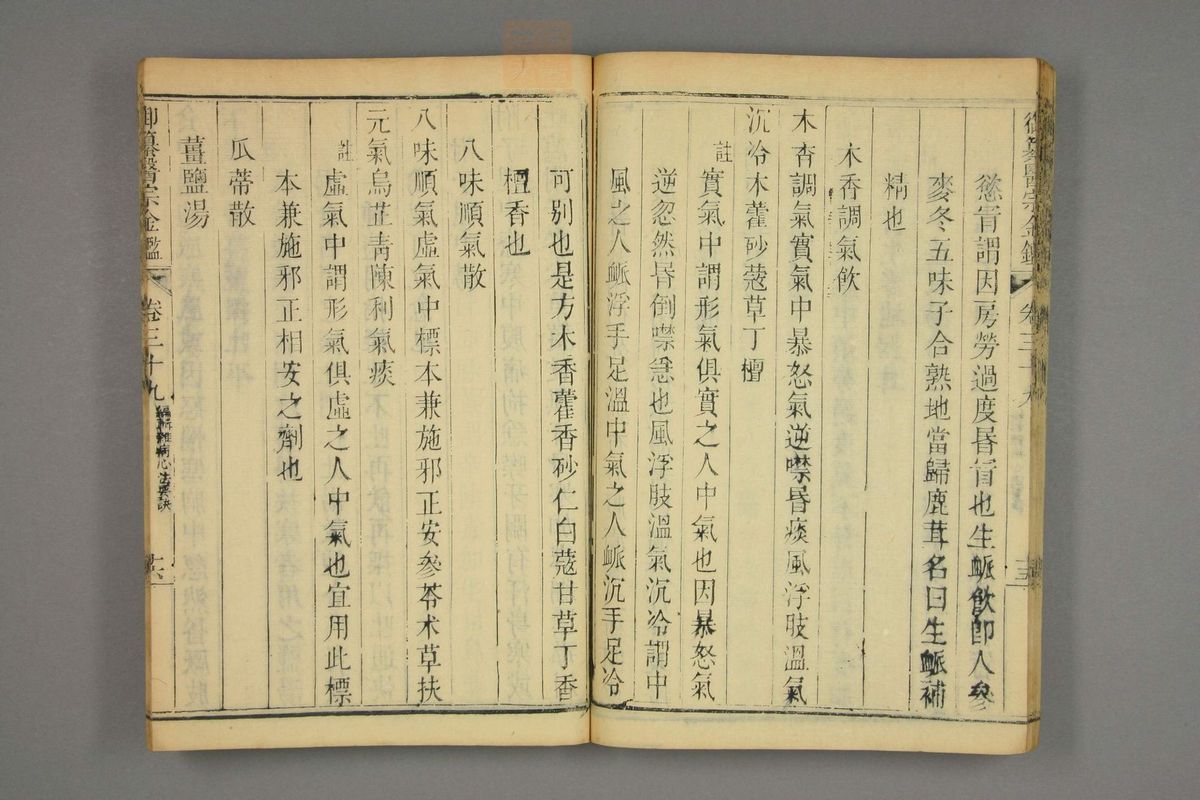 慾昏謂因房勞過度昏冒也生脈飲卽人參
麥冬五味子合熟地當歸鹿茸名曰生脈補
精也
木香調氣飮
木香調氣實氣中暴怒氣逆噤昏痰風浮肢溫氣
沉冷木藿砂蔻草丁檀
註
實氣中謂形氣俱實之人中氣也因暴怒氣
逆忽然昏倒噤急也風浮肢溫氣沉冷謂中
風之人脈浮手足溫中氣之人脈沉手足冷
可别也是方木香藿香砂仁白蔻甘草丁香
檀香也
八味順氣散
八味順氣虛氣中標本兼施邪正安參苓术草扶
元氣烏芷靑陳利氣痰
註
虛氣中謂形氣俱虛之人中氣也宜用此標
本兼施邪正相安之劑也
瓜蒂散
薑鹽湯
御纂醫宗金鑑
卷三十九
編輯雜病心法要訣